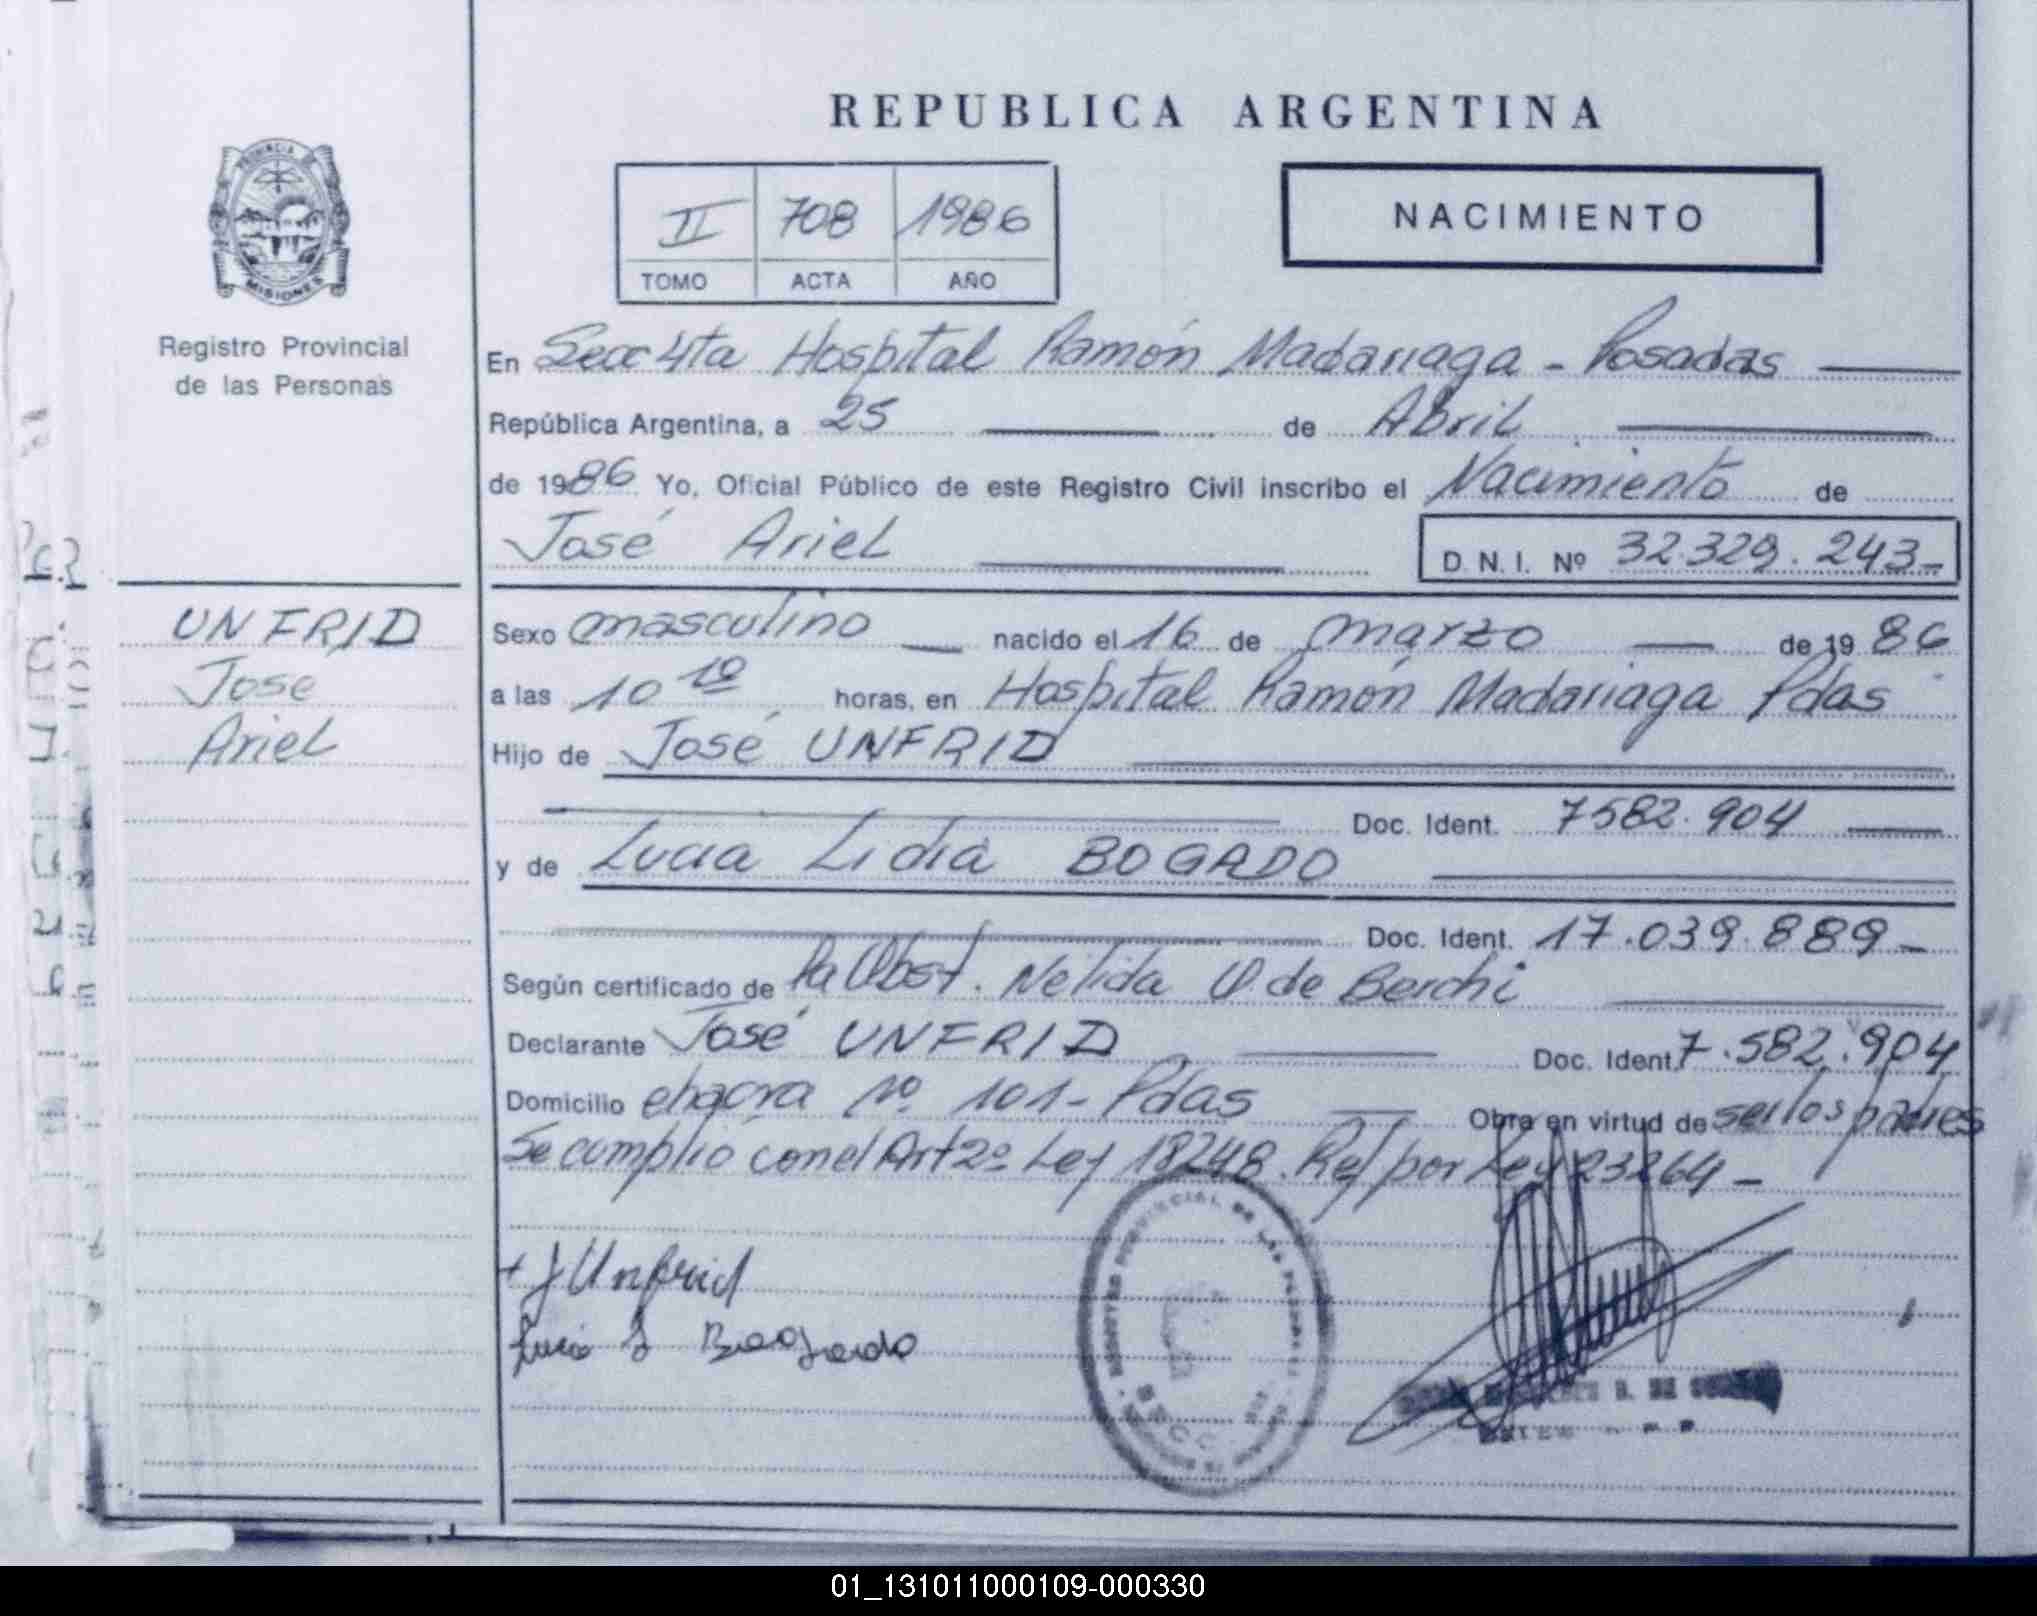 REPUBLICA ARGENTINA
PROVINCIA DE
MISIONES
Registro Provincial
de las Personas
II 708 1986
TOMO ACTA AÑO
NACIMIENTO
En Secc 4ta Hospital Ramón Madariaga - Posadas
República Argentina, a 25 de Abril
de 1986 Yo, Oficial Público de este Registro Civil inscribo el Nacimiento de
José Ariel D. N. I. Nº 32.329.243-
UNFRID
José
Ariel
Sexo masculino nacido el 16 de marzo de 1986
a las 10 10 horas, en Hospital Ramón Madariaga Pdas
Hijo de José UNFRID
Doc. Ident. 7582.904
y de Lucia Lidia BOGADO
Doc. Ident. 17.039.889-
Según certificado de la Obst. Nélida O de Berchi
Declarante José UNFRID Doc. Ident. 7.582.904
Domicilio chacra Nº 101- Pdas Obra en virtud de ser los padres
Se cumplió con el Art 2º Ley 18248. Ref por Ley 23264 -
J Unfrid
Lucia L Bogado
REGISTRO PROVINCIAL DE LAS PERSONAS
01_131011000109-000330